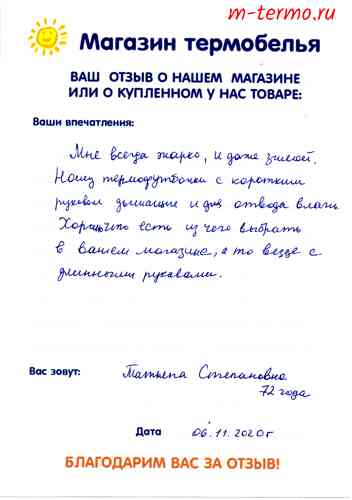 m-termo.ru
Магазин термобелья
ВАШ ОТЗЫВ О НАШЕМ МАГАЗИНЕ
ИЛИ О КУПЛЕННОМ У НАС ТОВАРЕ:
Ваши впечатления:
Мне всегда жарко, и даже зимой.
Ношу термофутболки с коротким
рукавом дышащие и для отвода влаги.
Хорошо что есть из чего выбрать
в вашем магазине, а то везде с
длинными рукавами.
Вас зовут: Татьяна Степановна
72 года
Дата 06.11.2020г
БЛАГОДАРИМ ВАС ЗА ОТЗЫВ!